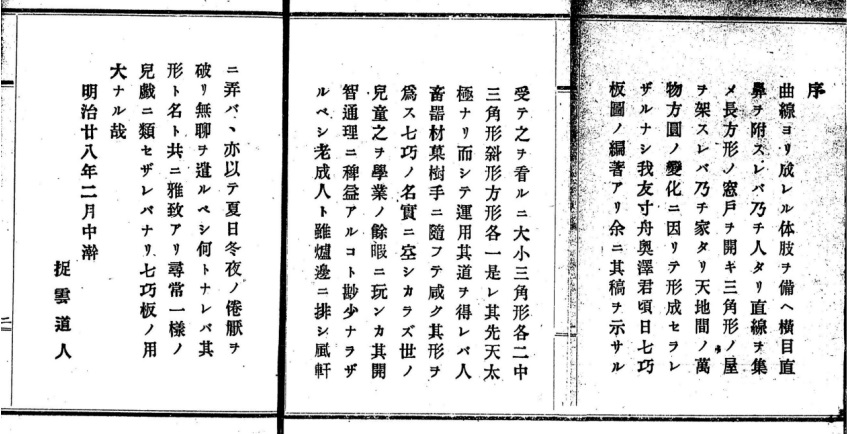 序
曲線ヨリ成レル体肢ヲ備ヘ横目直
鼻ヲ附スレバ乃チ人タリ直線ヲ集
メ長方形ノ窓戸ヲ開キ三角形ノ屋
ヲ架スレバ乃チ家タリ天地間ノ萬
物方圓ノ變化ニ因リテ形成セラレ
ザルナシ我友寸舟奥澤君頃日七巧
板圖ノ編著アリ余ニ其稿ヲ示サル
受テ之ヲ看ルニ大小三角形各二中
三角形斜形方形各一是レ其先天太
極ナリ而シテ運用其道ヲ得レバ人
畜器材菓樹手ニ隨フテ咸ク其形ヲ
爲ス七巧ノ名實ニ空シカラズ世ノ
兒童之ヲ學業ノ餘暇ニ玩ンカ其開
智通理ニ稗益アルコト尠少ナラザ
ルベシ老成人ト雖爐邊ニ排シ風軒
ニ弄バヽ亦以テ夏日冬夜ノ倦厭ヲ
破リ無聊ヲ遣ルベシ何トナレバ其
形ト名ト共ニ雅致アリ尋常一樣ノ
兒戯ニ類セザレバナリ七巧板ノ用
大ナル哉
明治廿八年二月中澣
捉雲道人